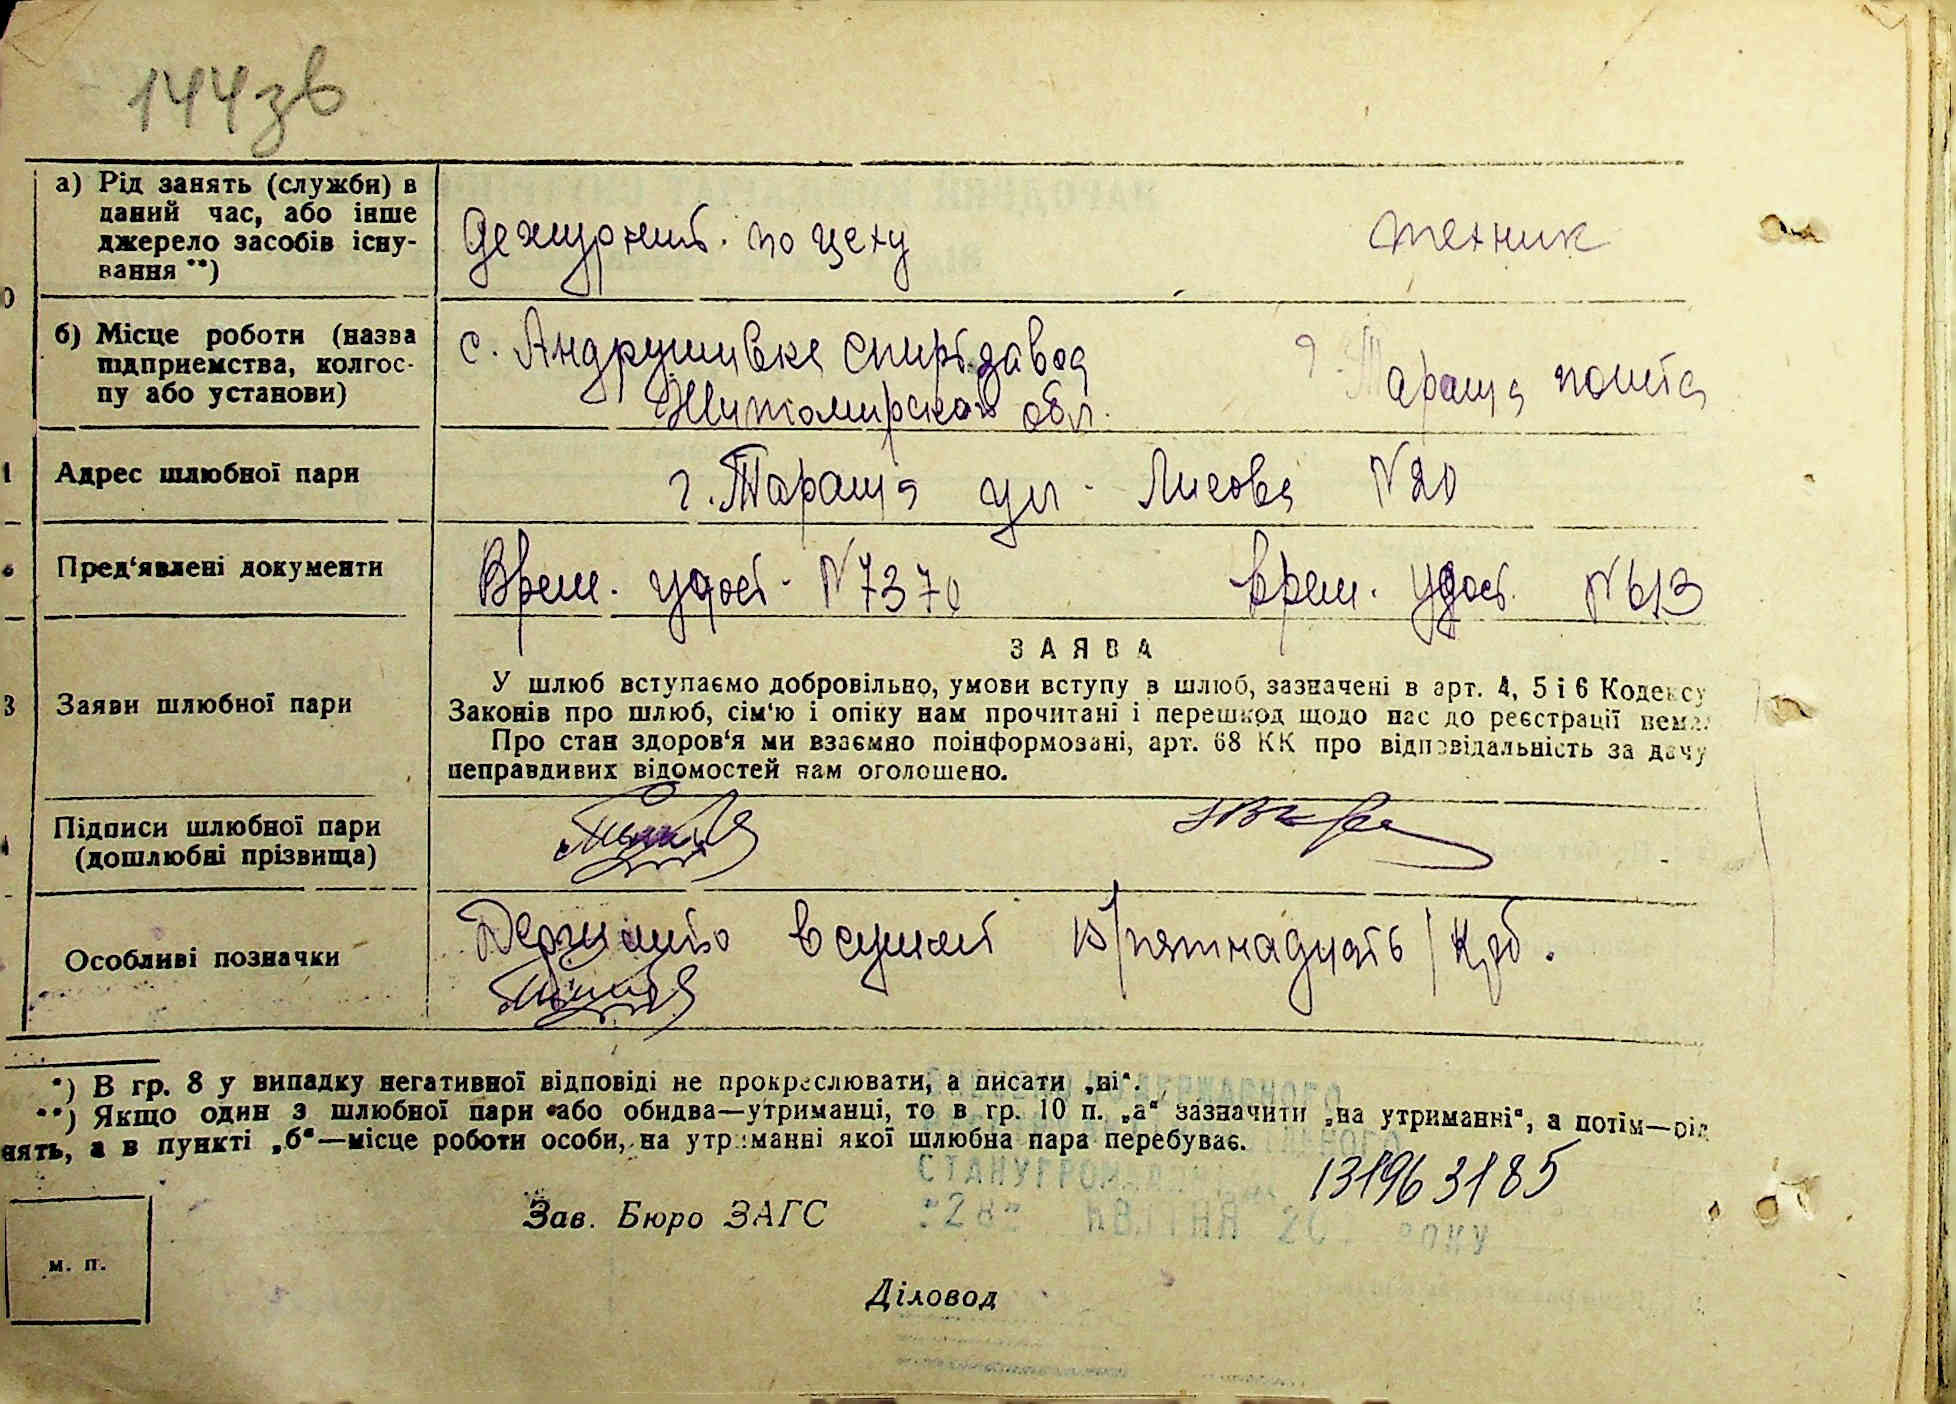 144зв
а) Рід занять (служби) в даний час, або інше джерело засобів існування **)
дежурний. по цеху
техник
б) Місце роботи (назва підприємства, колгоспу або установи)
с. Андрушивка спиртзавод
Житомирской обл.
г. Тараща пошта
Адрес шлюбної пари
г. Тараща ул. Лисова N 20
Пред'явлені документи
Врем. удост. N 7370
врем. удост. N 613
ЗАЯВА
Заяви шлюбної пари
У шлюб вступаємо добровільно, умови вступу в шлюб, зазначені в арт. 4, 5 і 6 Кодексу
Законів про шлюб, сім'ю і опіку нам прочитані і перешкод щодо нас до реєстрації нема.
Про стан здоров'я ми взаємно поінформовані, арт. 68 КК про відповідальність за дачу
неправдивих відомостей нам оголошено.
Підписи шлюбної пари
(дошлюбні прізвища)
Особливі позначки
Держмито в сумат 15/пятнадцять/крб.
*) В гр. 8 у випадку негативної відповіді не прокреслювати, а писати „ні“.
**) Якщо один з шлюбної пари або обидва—утриманці, то в гр. 10 п. „а“ зазначити „на утриманні“, а потім—рід
нять, а в пункті „б“—місце роботи особи, на утриманні якої шлюбна пара перебуває.
СТАНУ ГРОМАДЯН
131963185
Зав. Бюро ЗАГС
"28" КВІТНЯ 20 РОКУ
м. п.
Діловод